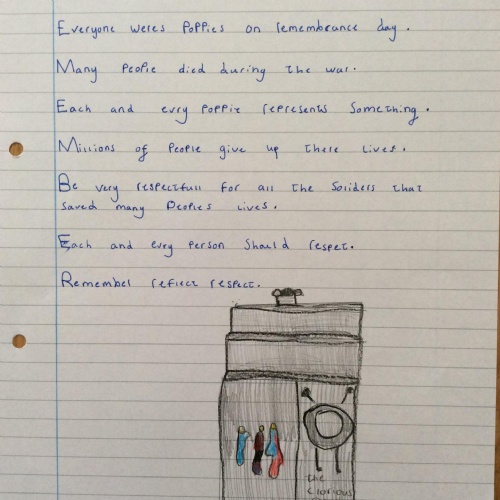 Everyone weres Poppies on remembrance day.
Many People died during the war.
Each and evry Poppie represents Something.
Millions of People give up there lives.
Be very respectfull for all the Soliders that
saved many Peoples lives.
Each and evry Person Should respet.
Remember reflect respect.
The
Glorious